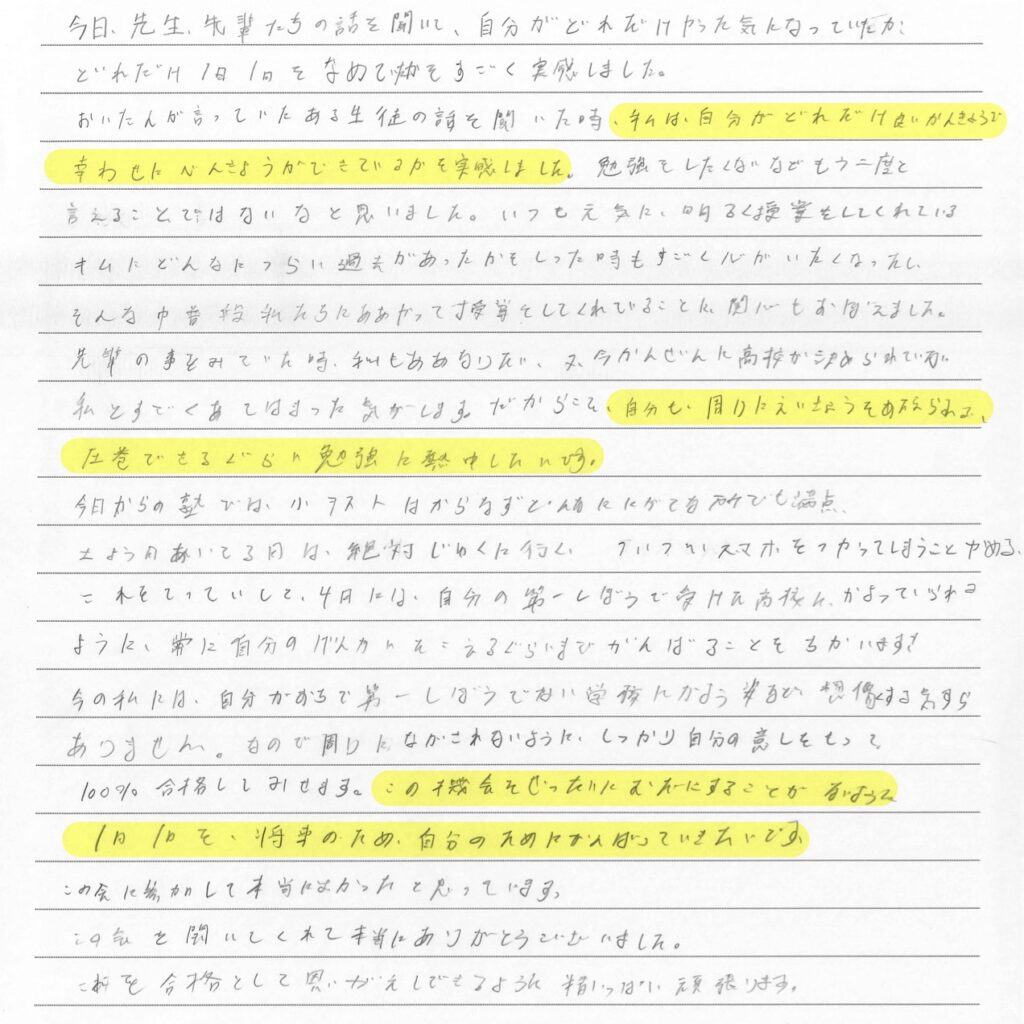 今日、先生、先輩たちの話を聞いて、自分がどれだけやった気になっていたか、
どれだけ1日1日をなめてたかをすごく実感しました。
おいたんが言っていたある生徒の話を聞いた時、私は、自分がどれだけ良いかんきょうで
幸わせにべんきょうができているかを実感しました。勉強をしたくないなどもう二度と
言えることではないなと思いました。いつも元気に、明るく授業をしてくれている
キムにどんなにつらい過去があったかをしった時もすごく心がいたくなったし、
そんな中普段私たちにあかって授業をしてくれてることに関心もおぼえました。
先輩の事をみていた時、私もああなりたい、又、今かんぜんに高校が決められていない
私とすごくあてはまった気がします。だからこそ、自分も、周りにえいきょうを与えられる、
圧巻できるぐらい勉強に熱中したいです。
今日からの塾では、小テストはかならずどんなににがてな所でも満点、
土よう日あいてる日は、絶対じゅくに行く、ついついスマホをつかってしまうことやめる、
これをてっていして、4月には、自分の第一しぼうで受けた高校に、かよっていられる
ように、常に自分のげん力いをこえるぐらいまでがんばることをちかいます!
今の私には、自分がおちて第一しぼうでない学校にかよう姿など、想像する気すら
ありません。なので周りにながされないように、しっかり自分の意しをもって
100%合格してみせます。この機会をぜったいにむだにすることがないように
1日1日を、将来のため、自分のためにがんばっていきたいです。
この会に参加して本当によかったと思っています。
この会を開いてくれて本当にありがとうございました。
これを合格として思いがえしできるように精いっぱい頑張ります。